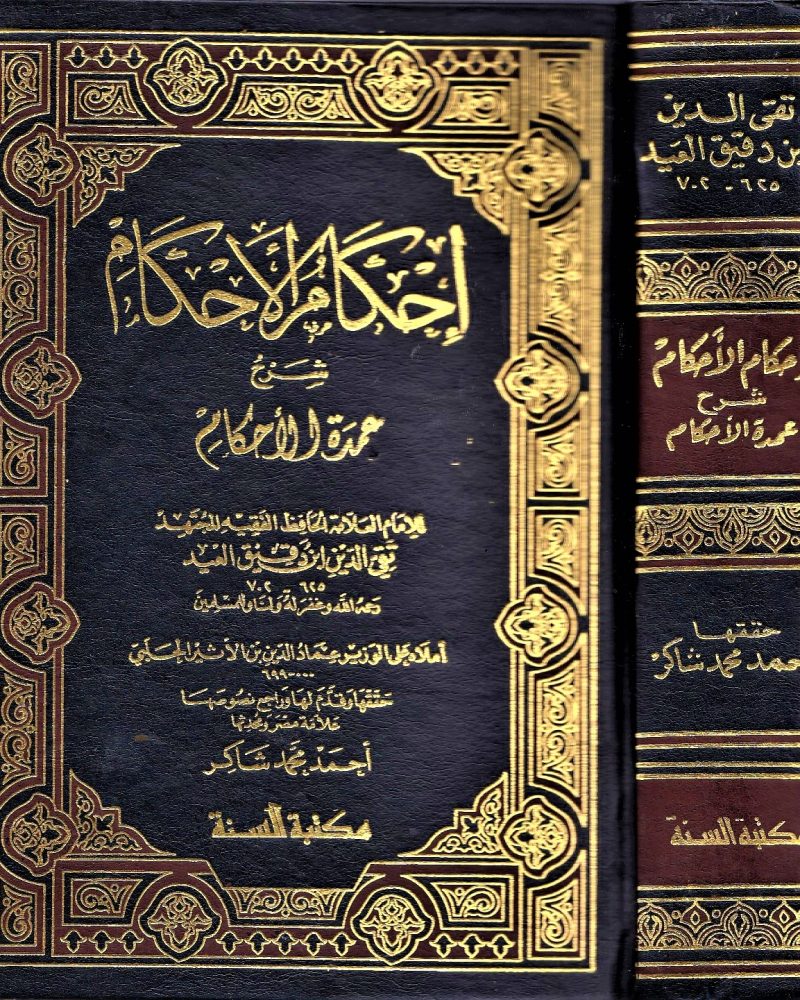 إحكام الأحكام
شرح
عمدة الأحكام
للإمام العلامة الحافظ الفقيه المجتهد
تقي الدين ابن دقيق العيد
٦٢٥ ٧٠٢
رحمه الله وغفر له ولنا وللمسلمين
أملاه على الوزير عماد الدين بن الأثير الحلبي
٠٠٠-٦٩٩
حققها وقدم لها وراجع نصوصها
علامة مصر ومحدثها
أحمد محمد شاكر
مكتبة السنة
تقى الدين
بن دقيق العيد
٦٢٥ - ٧٠٢
إحكام الأحكام
شرح
عمدة الأحكام
حققها
أحمد محمد شاكر
مكتبة السنة